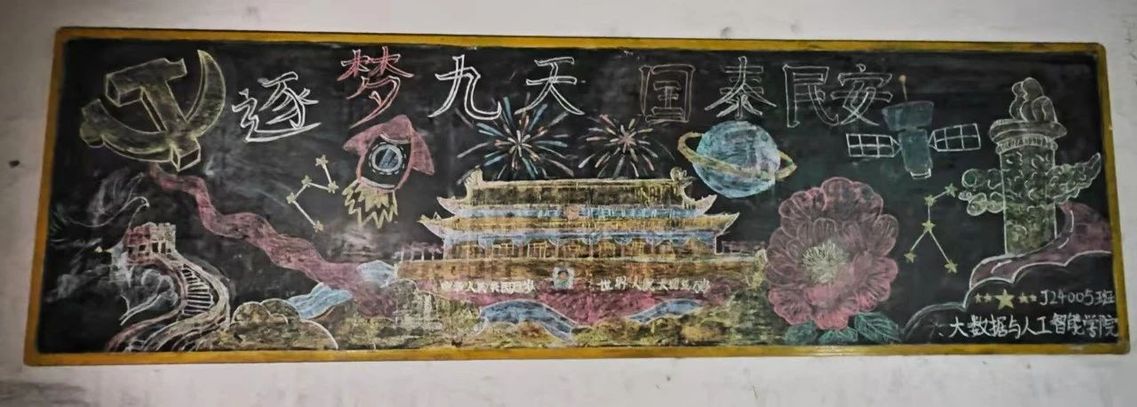 逐梦九天 国泰民安
中华人民共和国万岁 世界人民大团结万岁
J24005班
大数据与人工智能学院